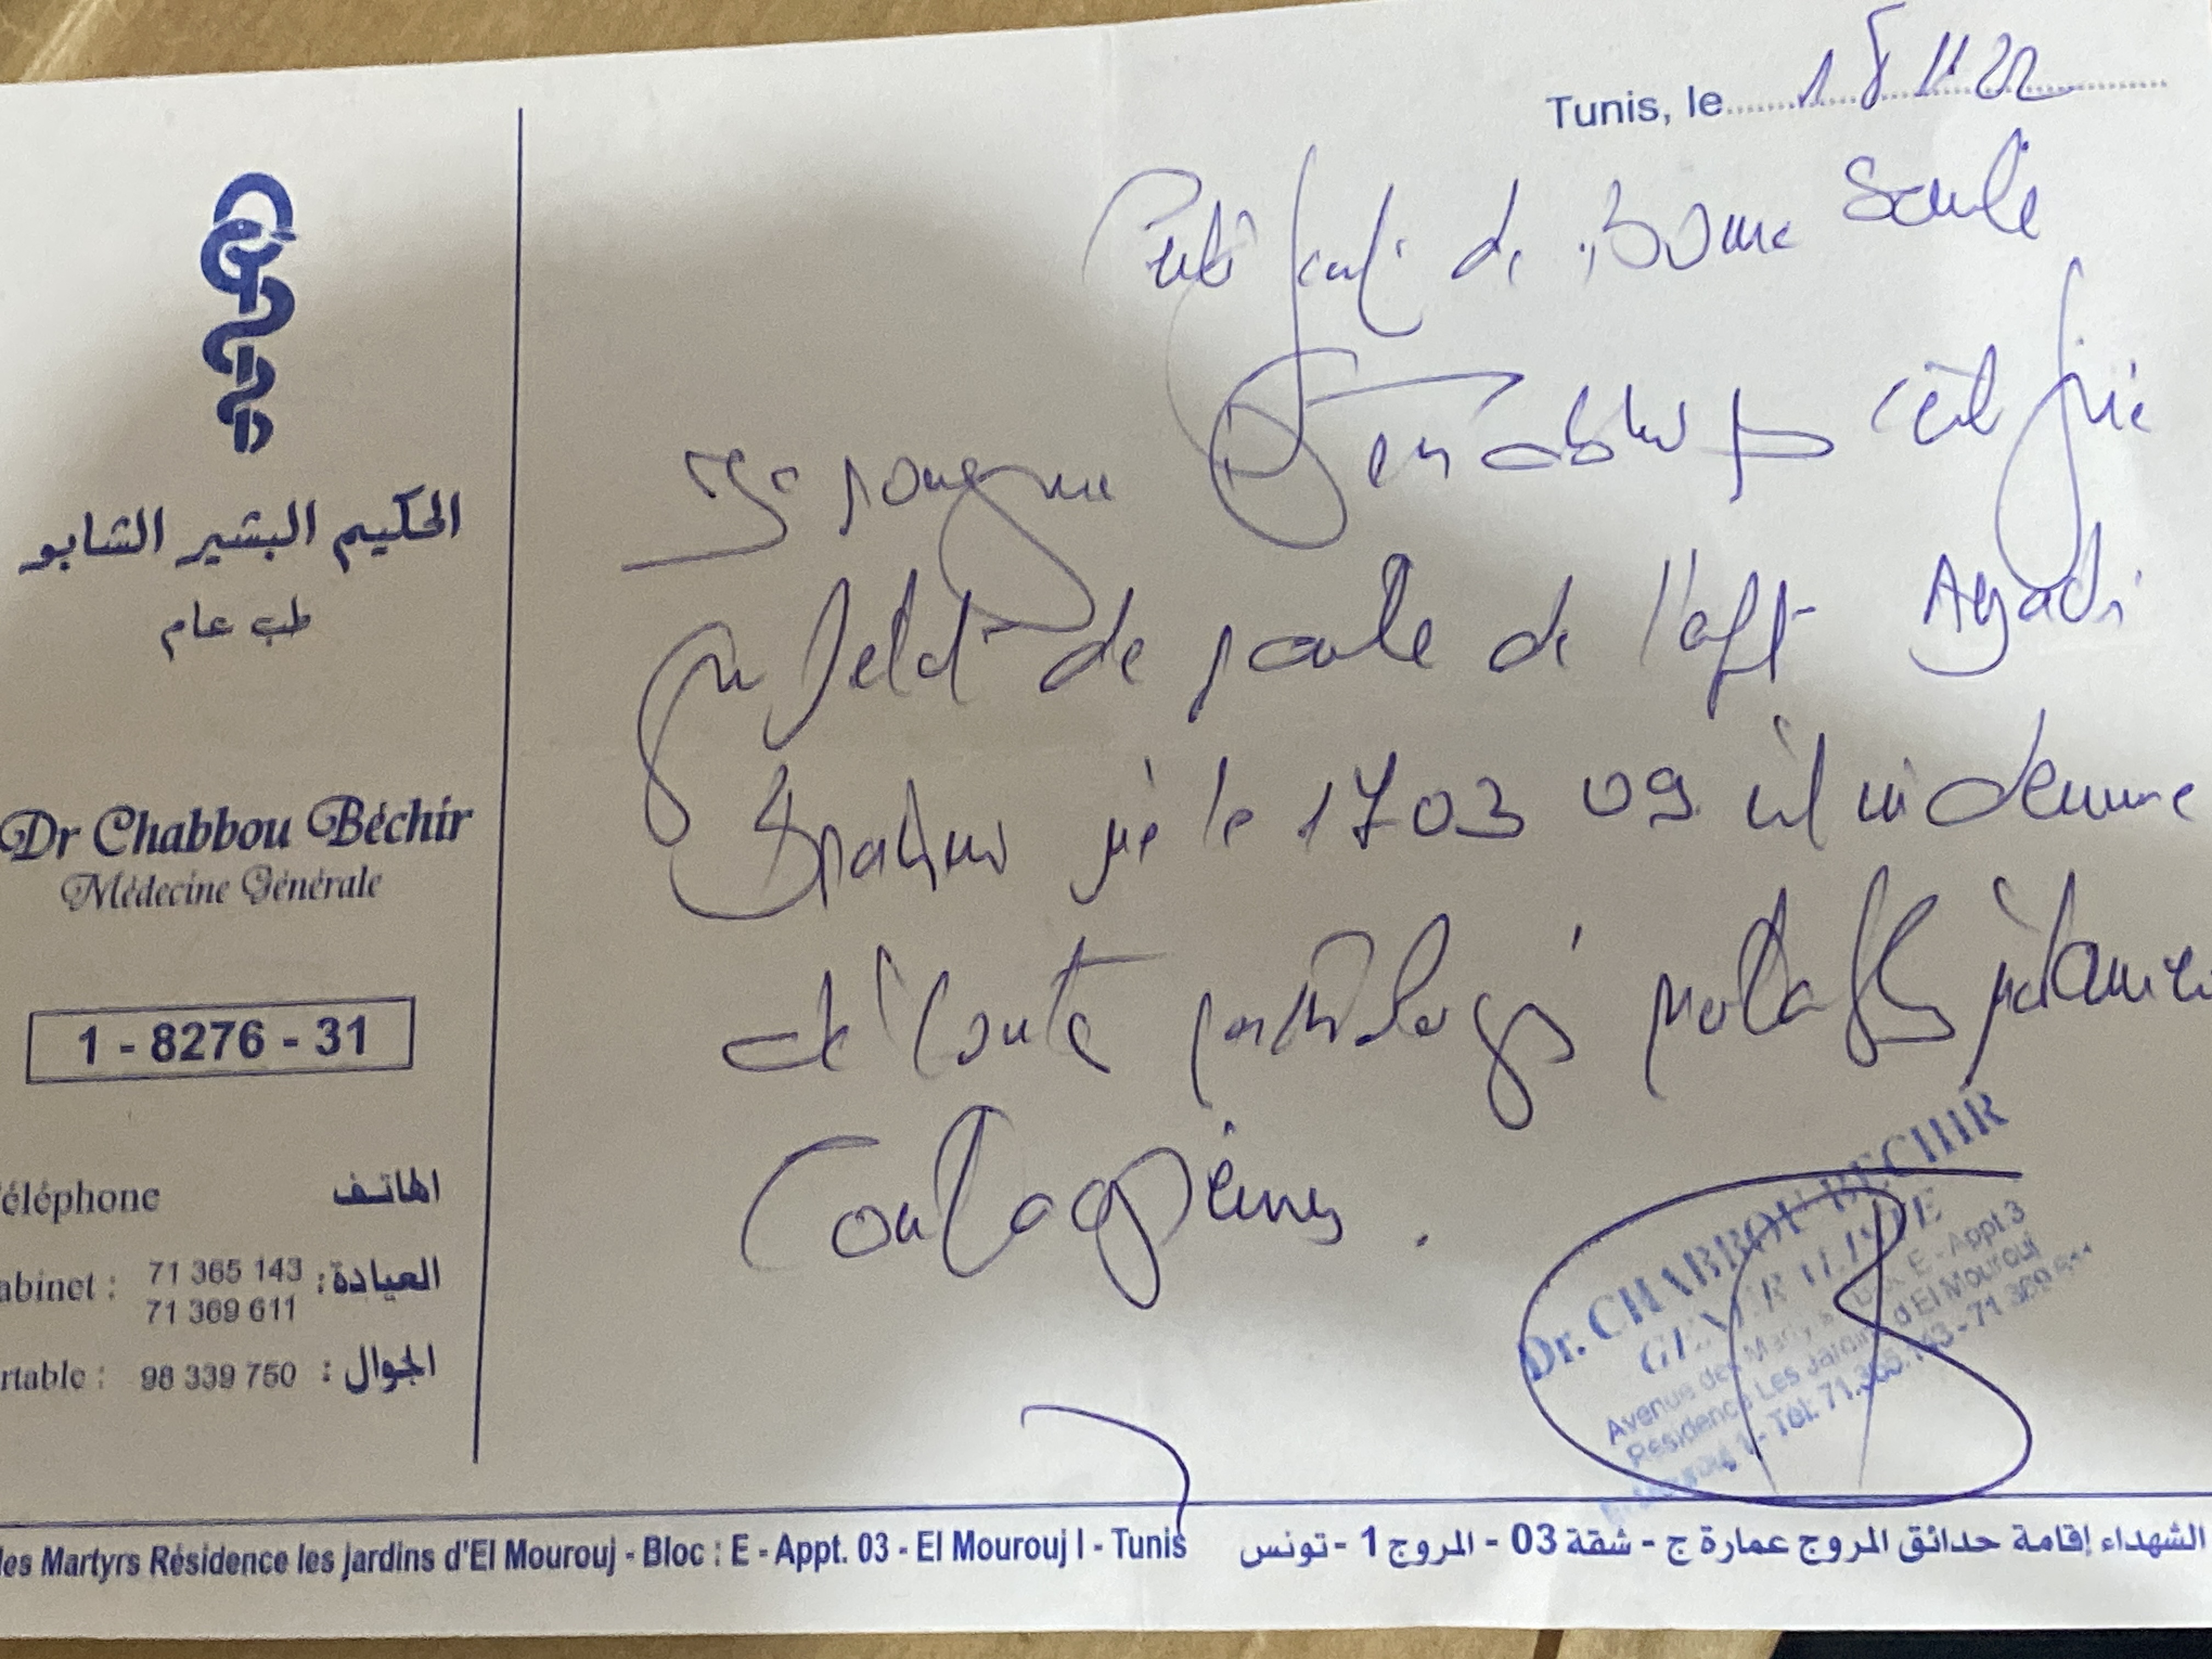 Tunis, le 18 11 22
Certificat de Bonne Santé
Je soussigné Dr Chabbou B certifie
que l'état de santé de l'aft Ayadi
Brahim né le 17 03 09 est indemne
de toute pathologie
contagieuse.
الحكيم البشير الشابو
طب عام
Dr Chabbou Béchir
Médecine Générale
1 - 8276 - 31
éléphone الهاتف
abinet : 71 365 143 العيادة :
71 369 611
rtable : 98 339 750 الجوال :
Dr. CHABBOU BECHIR
GENERALISTE
Avenue des Martyrs Bloc E - Appt 3
Résidence Les Jardins d'El Mourouj
Mourouj 1 - Tél: 71.365.143 - 71 369
les Martyrs Résidence les jardins d'El Mourouj - Bloc : E - Appt. 03 - El Mourouj I - Tunis
الشهداء إقامة حدائق المروج عمارة ج - شقة 03 - المروج 1 - تونس